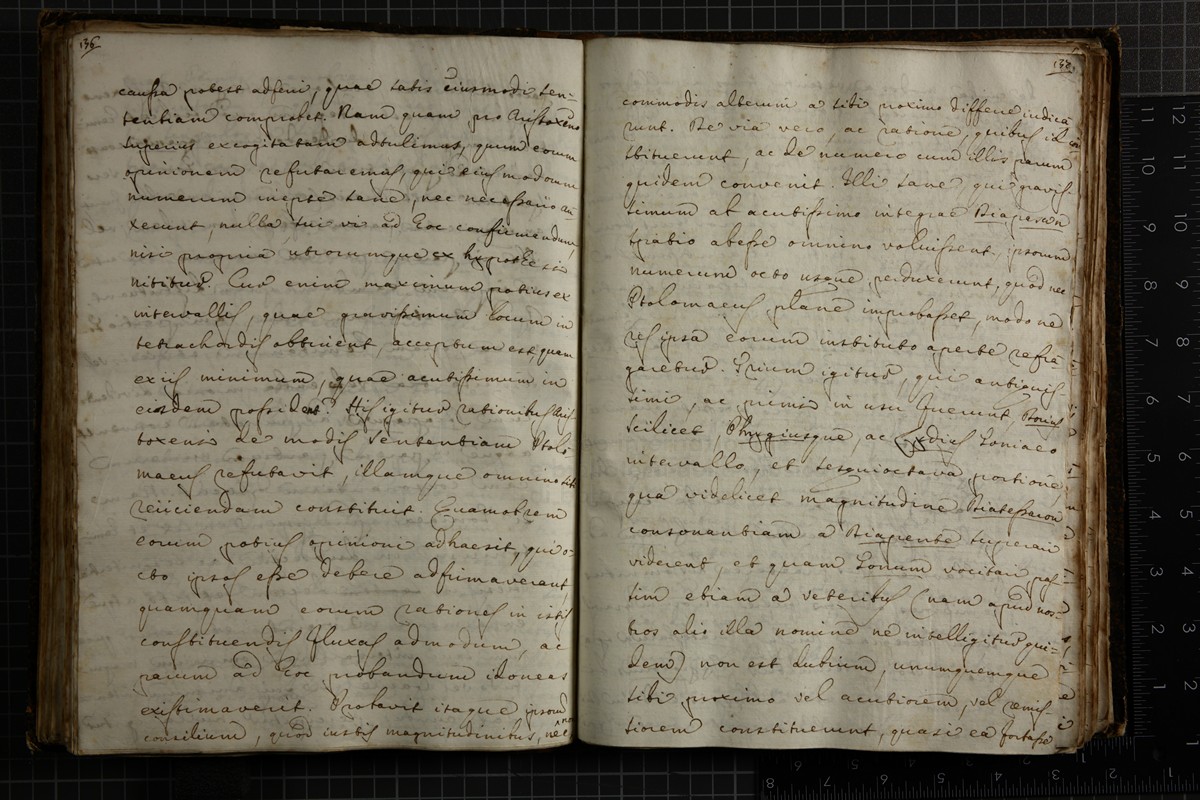 136
caussa potest adferri, quae satis eiusmodi sen-
tentiam comprobet. Nam quam pro Aristoxeno
superius excogitatam adtulimus, quum eorum
opinionem refutaremus, qui eius modorum
numerum inepte sane, nec necessario au-
xerunt, nulla sui vi ad hoc confirmandum,
nisi propria utrorumque ex hypothesi
nititur. Cur enim maximum potius ex
intervallis, quae gravissimum locum in
tetrachordis obtinent, acceptum est, quam
ex iis minimum, quae acutissimum in
eisdem possident? His igitur rationibus Aris-
toxenis de modis sententiam Ptolo-
maeus refutavit, illamque omnino sibi
reiiciendam constituit. Quamobrem
eorum potius opinioni adhaesit, qui o-
cto ipsos esse debere adfirmaverant,
quamquam eorum rationes in istis
constituendis fluxas admodum, ac
parum ad hoc probandum idoneas
existimaverit. Probavit itaque ipsorum
consilium, quod iustis magnitudinibus, nec non
137.
commodis alterum a sibi proximo differre indica
runt. De via vero, ac ratione, quibus id con
stituerunt, ac de numero cum illis parum
quidem convenit. Illi sane, qui gravis-
simum ab acutissimo integrae Diapason
spatio abesse omnino voluissent, ipsorum
numerum octo usque perduxerunt, quod nec
Ptolomaeus plane improbasset, modo ne
res ipsa eorum instituto aperte refra-
garetur. Trium igitur, qui antiquis-
simi, ac primis in usu fuerunt, Dorius
scilicet, Phrygiusque, ac Lydius toniaeo
intervallo, et sesquioctava portione,
qua videlicet magnitudine Diatessaron
consonantiam a Diapente superari
viderent, et quam Tonum vocitari pas-
sim etiam a veteribus (nam apud nos-
tros alio illa nomine ne intelligitur qui-
dem) non est dubium, unumquemque
sibi proximo vel acutiorem, vel remis-
siorem constituerunt, quasi ea fortasse